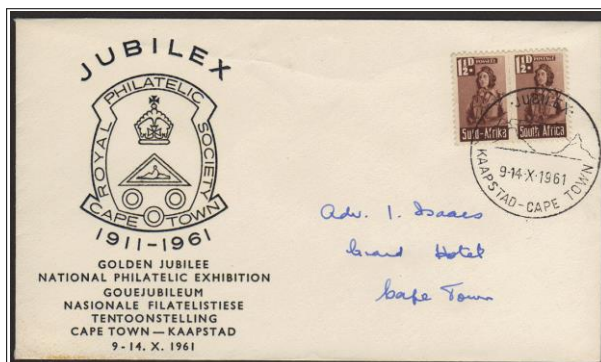 JUBILEX
ROYAL PHILATELIC SOCIETY
CAPE TOWN
1911-1961
GOLDEN JUBILEE
NATIONAL PHILATELIC EXHIBITION
GOUEJUBILEUM
NASIONALE FILATELISTIESE
TENTOONSTELLING
CAPE TOWN — KAAPSTAD
9-14. X. 1961
1½D 1½D
Suid-Afrika South Africa
·JUBILEX·
9-14·X·1961
KAAPSTAD-CAPE TOWN
Adv. I. Isaacs
Grand Hotel
Cape Town